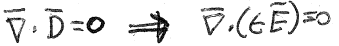 ∇̅ · D̅ = 0 ⟹ ∇̅ · (ϵE̅) = 0